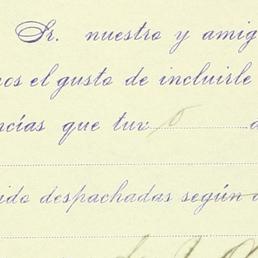 Sr. nuestro y amig
nos el gusto de incluirle
ncías que tuv o
ido despachadas según